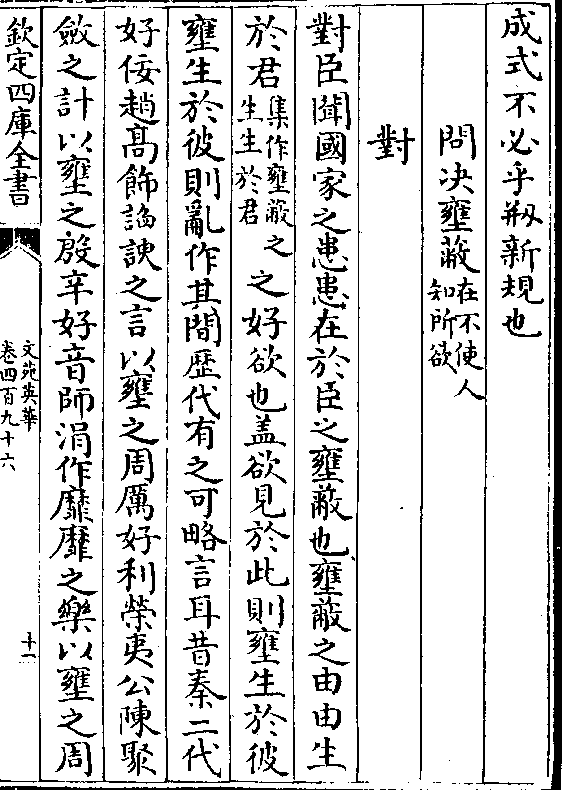 成式不必乎刱新規也
問决壅蔽在不使人知所欲
對
對臣聞國家之患患在於臣之壅蔽也壅蔽之由由生
於君集作壅蔽之生生於君之好欲也盖欲見於此則壅生於彼
壅生於彼則亂作其間歴代有之可略言耳昔秦二代
好佞趙髙飾謟諛之言以壅之周厲好利榮夷公陳聚
斂之計以壅之殷辛好音師涓作靡靡之樂以壅之周
欽定四庫全書
文苑英華
卷四百九十六
十一